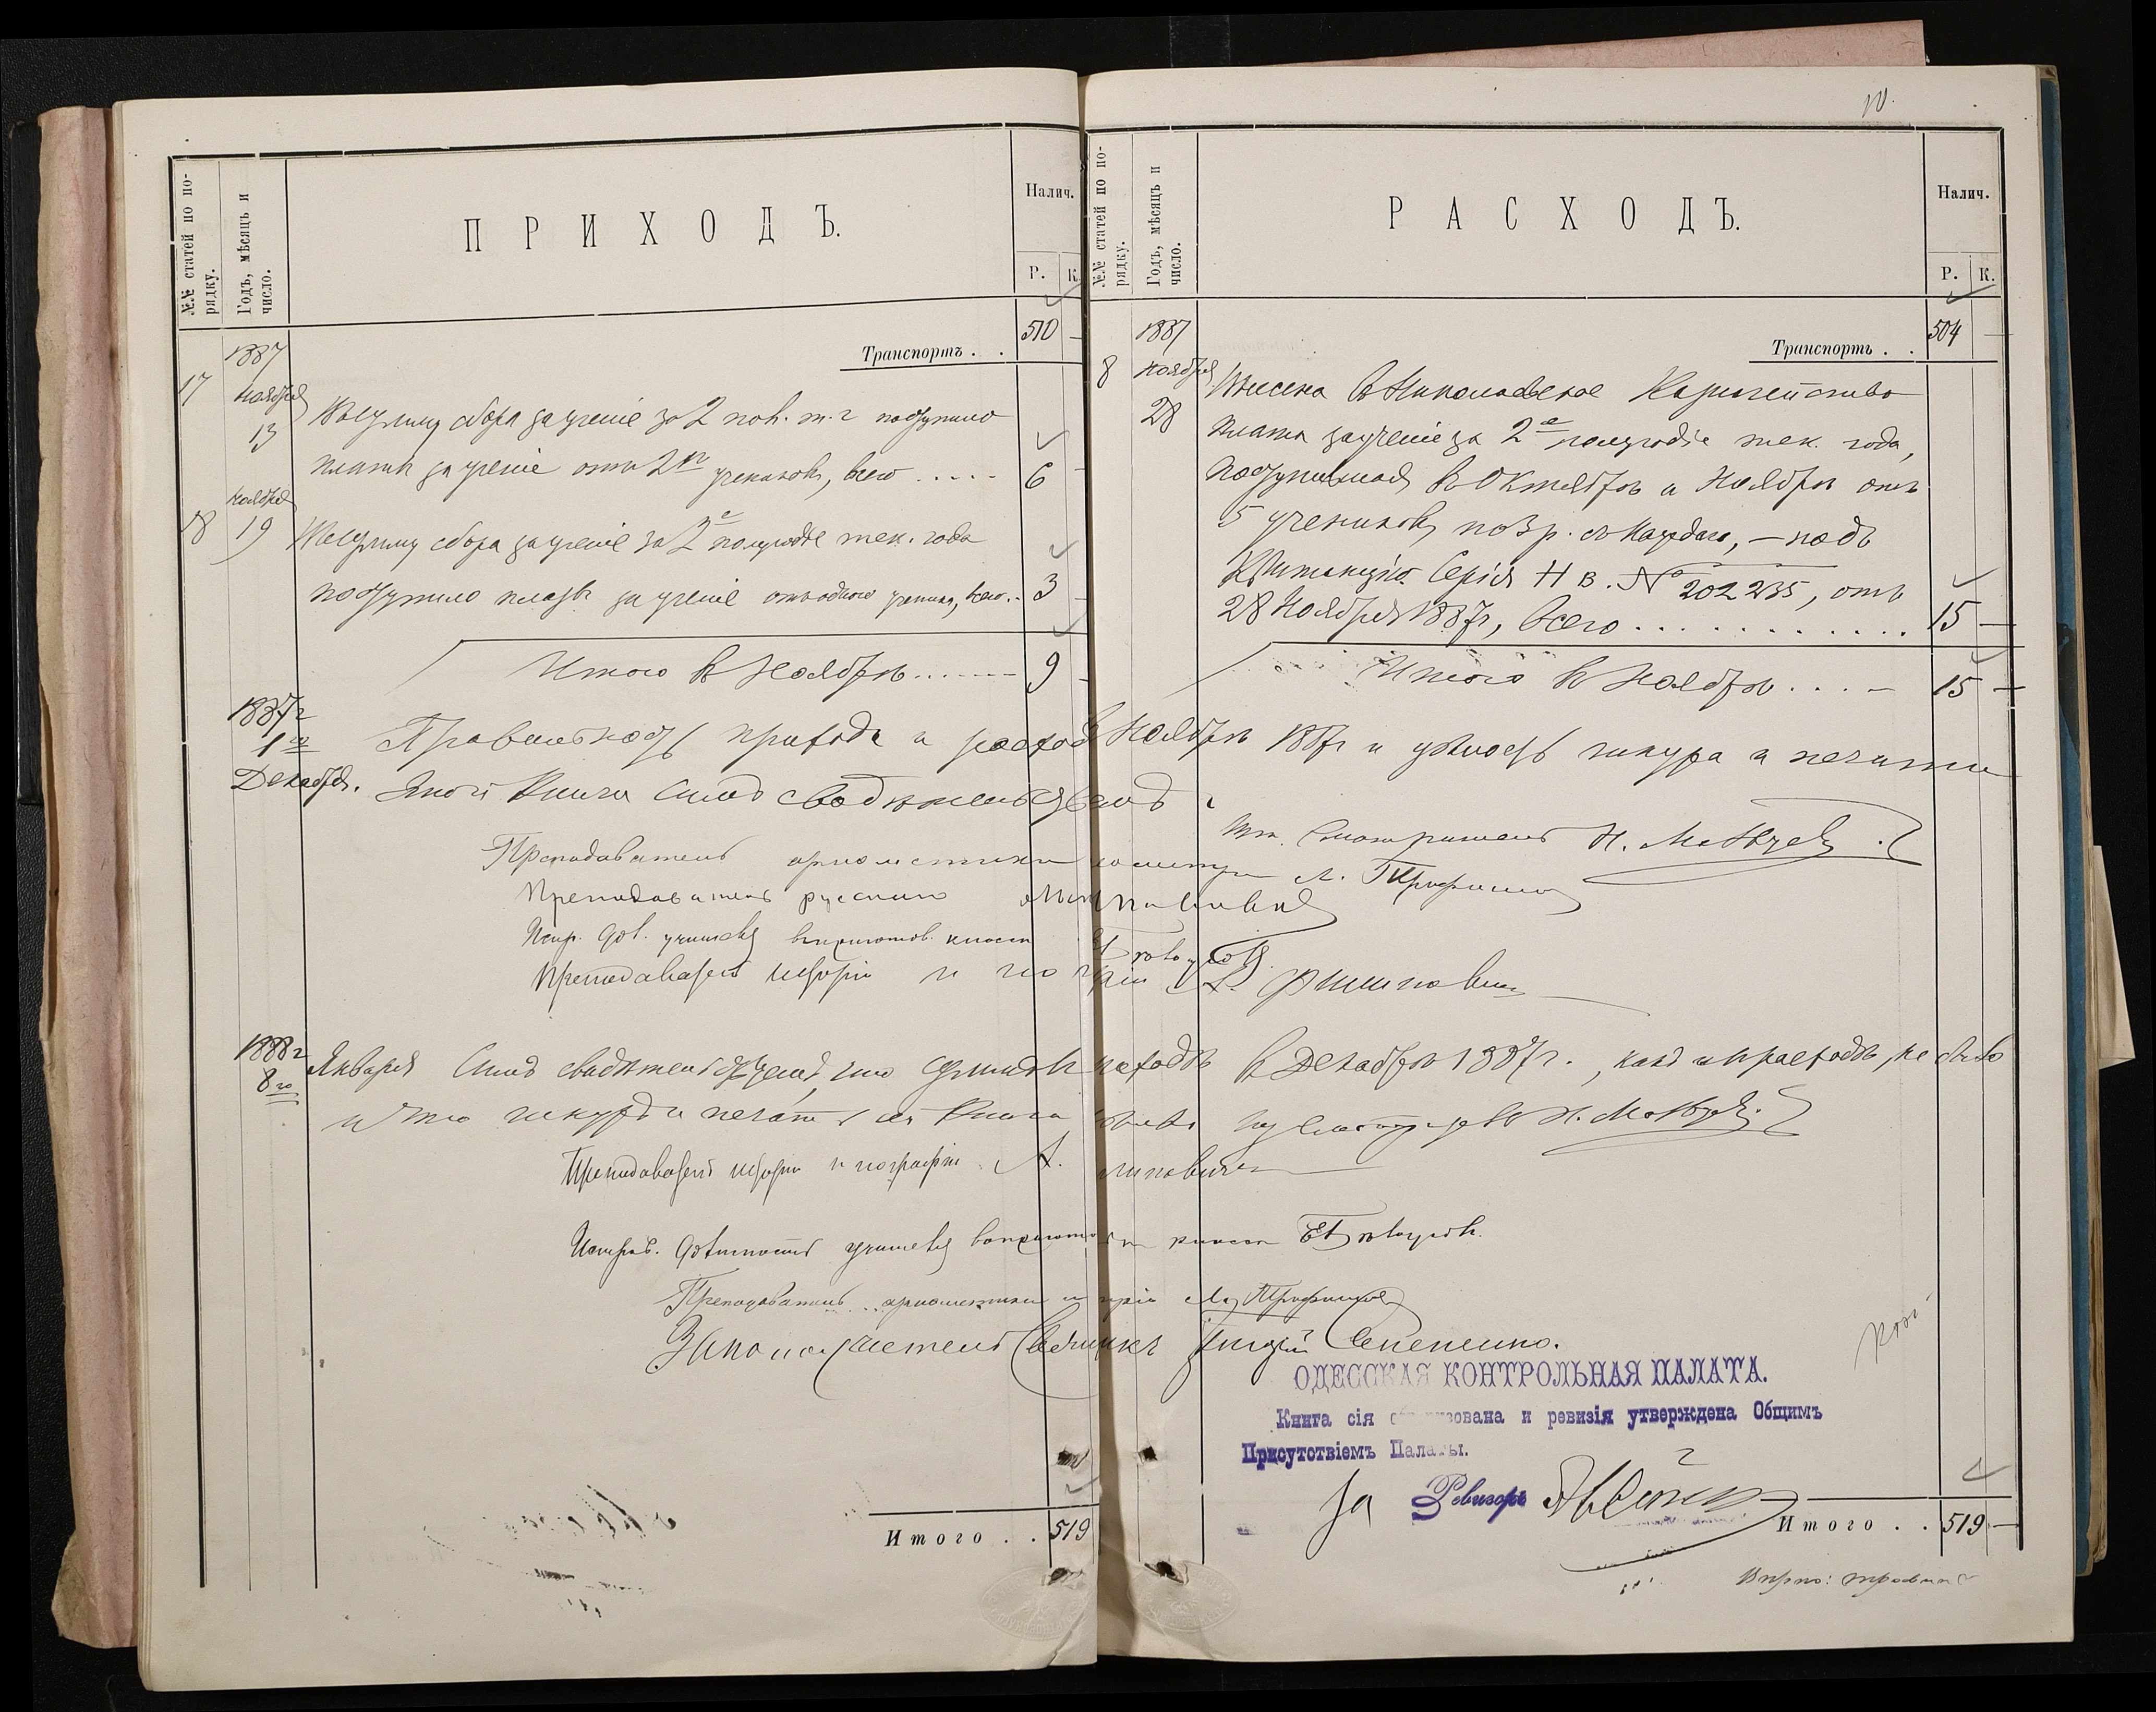 №№ статей по по-
рядку.
Годъ, мѣсяцъ и
число.
ПРИХОДЪ.
Налич.
Р. К.
Транспортъ . . 510 -
1887
17 Ноября
13
сбора за ученіе за 2 пол. т. г. поступило
плата за ученіе отъ 2хъ учениковъ, всего ..... 6 -
Ноября
18 19 сбора за ученіе за 2е полугодіе тек. года
поступило платы за ученіе отъ одного ученика, всего.. 3 -
Итого въ Ноябрѣ ....... 9 -
Итого . . 519
10.
№№ статей по по-
рядку.
Годъ, мѣсяцъ и
число.
РАСХОДЪ.
Налич.
Р. К.
Транспортъ . . 504 —
1887
8 Ноября
28
Внесена въ Николаевское Казначейство
плата за ученіе за 2е полугодіе тек. года,
поступившая въ Октябрѣ и Ноябрѣ отъ
5 учениковъ по 3 р. съ каждаго, — подъ
Квитанцію Серія Н В. № 202235, отъ
28 Ноября 1887 г, всего ............ 15 —
Итого въ Ноябрѣ .... 15 —
1887 г
1го
Декабря.
Правильность прихода и расхода въ Ноябрѣ 1887 г и цѣлость шнура и печати
этой книги симъ свидѣтельствуемъ
Смотритель Н.
Преподаватель ариѳметики и геометріи Л.
Преподаватель русскаго
Испр. дол. учителя въ приготов. классѣ
Преподаватель исторіи и географіи А. Филиповичъ
1888 г
8го
Января Симъ свидѣтельствуемъ, что суммъ въ приходѣ въ Декабрѣ 1887 г., какъ и въ расходѣ, не было
и что шнуръ и печать сей книги цѣлы Н.
Преподаватель исторіи и географіи А. Филиповичъ
Исправ. должность учителя въ приготов. классѣ
Преподаватель ариѳметики и геометріи
Законоучитель Священникъ
ОДЕССКАЯ КОНТРОЛЬНАЯ ПАЛАТА.
Книга сія обревизована и ревизія утверждена Общимъ
Присутствіемъ Палаты.
За Ревизоръ
Итого . . 519 —
Вѣрно: